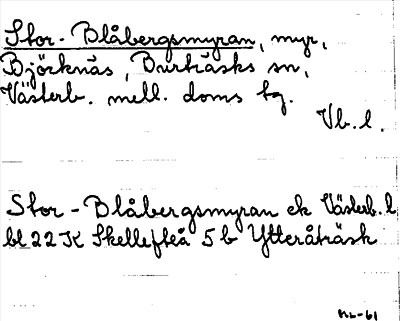 Stor-Blåbergsmyran, myr,
Björknäs, Burträsks sn,
Västerb. mell. doms tg.
Vb. l.
Stor-Blåbergsmyran ek Västerb. l
bl 22 K Skellefteå 5 b Ytteråträsk
ML-61